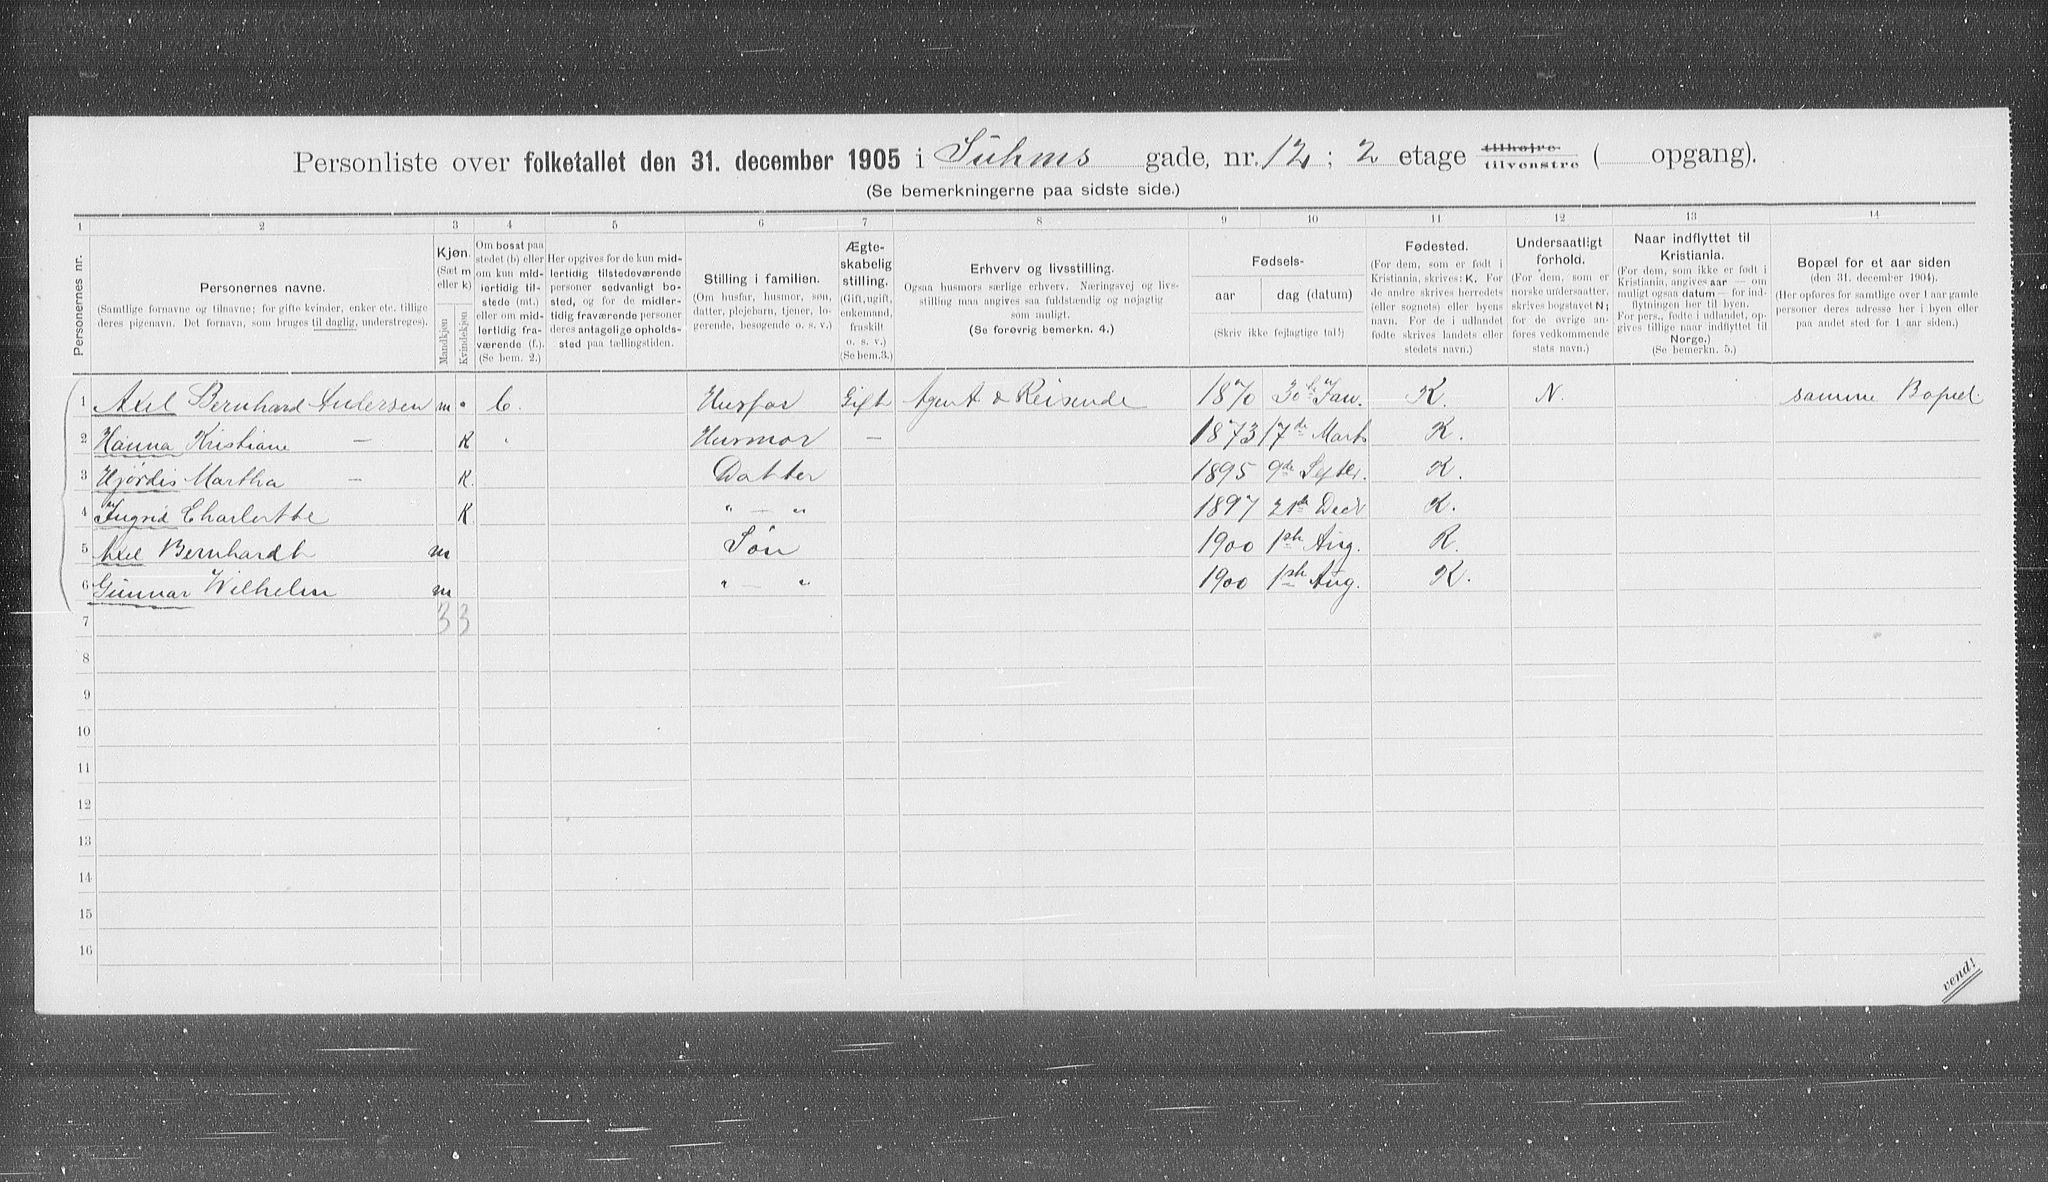 Personliste over folketallet den 31. december 1905 i Suhms gade, nr. 12 ; 2 etage tilhøjre tilvenstre ( opgang).
(Se bemerkningerne paa sidste side.)
1 2 3 4 5 6 7 8 9 10 11 12 13 14
Personernes nr.
Personernes navne.
(Samtlige fornavne og tilnavne; for gifte kvinder, enker etc. tillige deres pigenavn. Det fornavn, som bruges til daglig, understreges).
Kjøn.
(Sæt m eller k)
Mandkjøn
Kvindekjøn
Om bosat paa stedet (b) eller om kun midlertidig tilstede (mt.) eller om midlertidig fraværende (f.). (Se bem. 2.)
Her opgives for de kun midlertidig tilstedeværende personer sedvanligt bosted, og for de midlertidig fraværende personer deres antagelige opholdssted paa tællingstiden.
Stilling i familien.
(Om husfar, husmor, søn, datter, plejebarn, tjener, logerende, besøgende o. s. v.)
Ægteskabelig stilling.
(Gift, ugift, enkemand, fraskilt o. s. v.)
(Se bem. 3.)
Erhverv og livsstilling.
Ogsaa husmors særlige erhverv. Næringsvej og livsstilling maa angives saa fuldstændig og nøjagtig som muligt.
(Se forøvrig bemerkn. 4.)
Fødsels-
aar
dag (datum)
(Skriv ikke fejlagtige tal!)
Fødested.
(For dem, som er født i Kristiania, skrives: K. For de andre skrives herredets (eller sognets) eller byens navn. For de i udlandet fødte skrives landets eller stedets navn.)
Undersaatligt forhold.
(For dem, som er norske undersaatter, skrives bogstavet N; for de øvrige anføres vedkommende stats navn.)
Naar indflyttet til Kristiania.
(For dem, som ikke er født i Kristiania, angives aar — om muligt ogsaa datum — for indflytningen her til byen. For pers., fødte i udlandet, opgives tillige naar indflyttet til Norge.)
(Se bemerkn. 5.)
Bopæl for et aar siden
(den 31. december 1904).
(Her opføres for samtlige over 1 aar gamle personer deres adresse her i byen eller paa andet sted for 1 aar siden.)
1 Axel Bernhard Andersen m b. Husfar Gift Agent & Reisende 1870 30te Jan. K. N. samme Bopæl.
2 Hanna Kristiane — K " Husmor — 1873 17de Marts K.
3 Hjørdis Martha — K. Datter 1895 9de Septbr. K.
4 Ingrid Charlotte K " — " 1897 21de Decbr K.
5 Axel Bernhardt m Søn 1900 1ste Aug. K.
6 Gunnar Wilhelm m " — " 1900 1ste Aug. K.
7 3 3
8
9
10
11
12
13
14
15
16
vend!